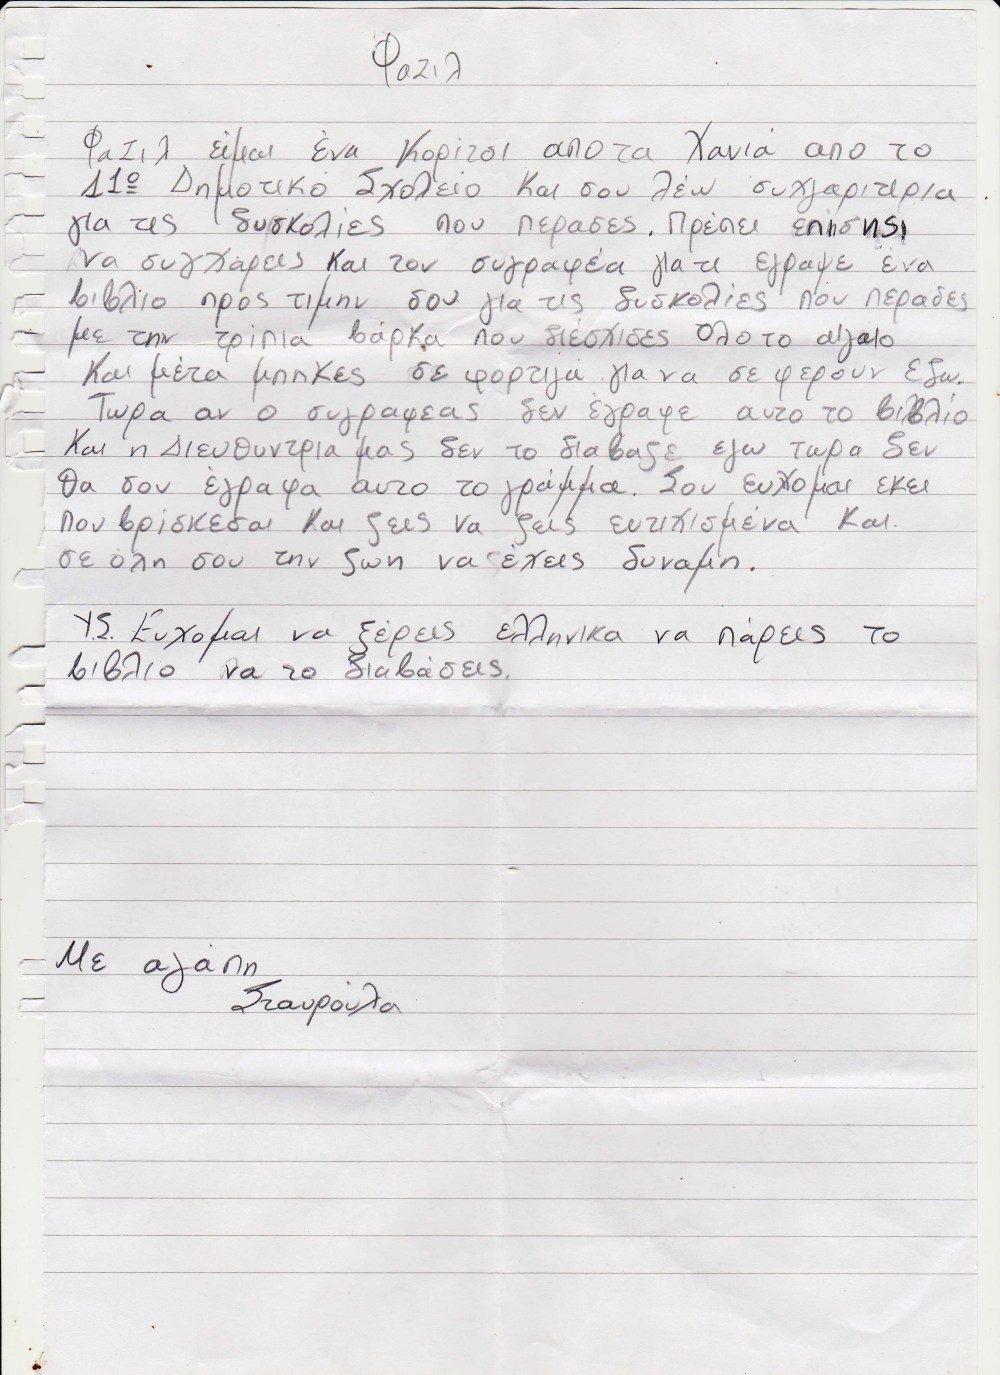 Φαζιλ
Φαζιλ είμαι ένα κορίτσι απο τα Χανιά απο το
11º Δημοτικό Σχολείο και σου λέω συχγαριτιρια
για τις δυσκόλιες που περασες. Πρέπει επισησι
να συγχαρεις και τον συγραφέα γιατι εγραψε ένα
βιβλιο προς τιμην σου για τις δυσκολίες που περαδες
με την τρίπια βάρκα που διέσχιδες όλο το αιγαιο
και μέτα μπηκες σε φορτιγα για να σε φερουν εξω.
Τωρα αν ο συγραφεας δεν έγραφε αυτο το βιβλίο
και η Διευθυντρια μας δεν το διαβαζε εγω τωρα δεν
θα σου έγραφα αυτο το γράμμα. Σου ευχομαι εκει
που βρισκεσαι και ζεις να ζεις ευτιχισμένα και
σε όλη σου την ζωη να έχεις δυναμη.
Υ.Σ. Ευχομαι να ξέρεις ελληνικα να πάρεις το
βιβλιο να το διαβάσεις.
Με αγάπη
Σταυρούλα